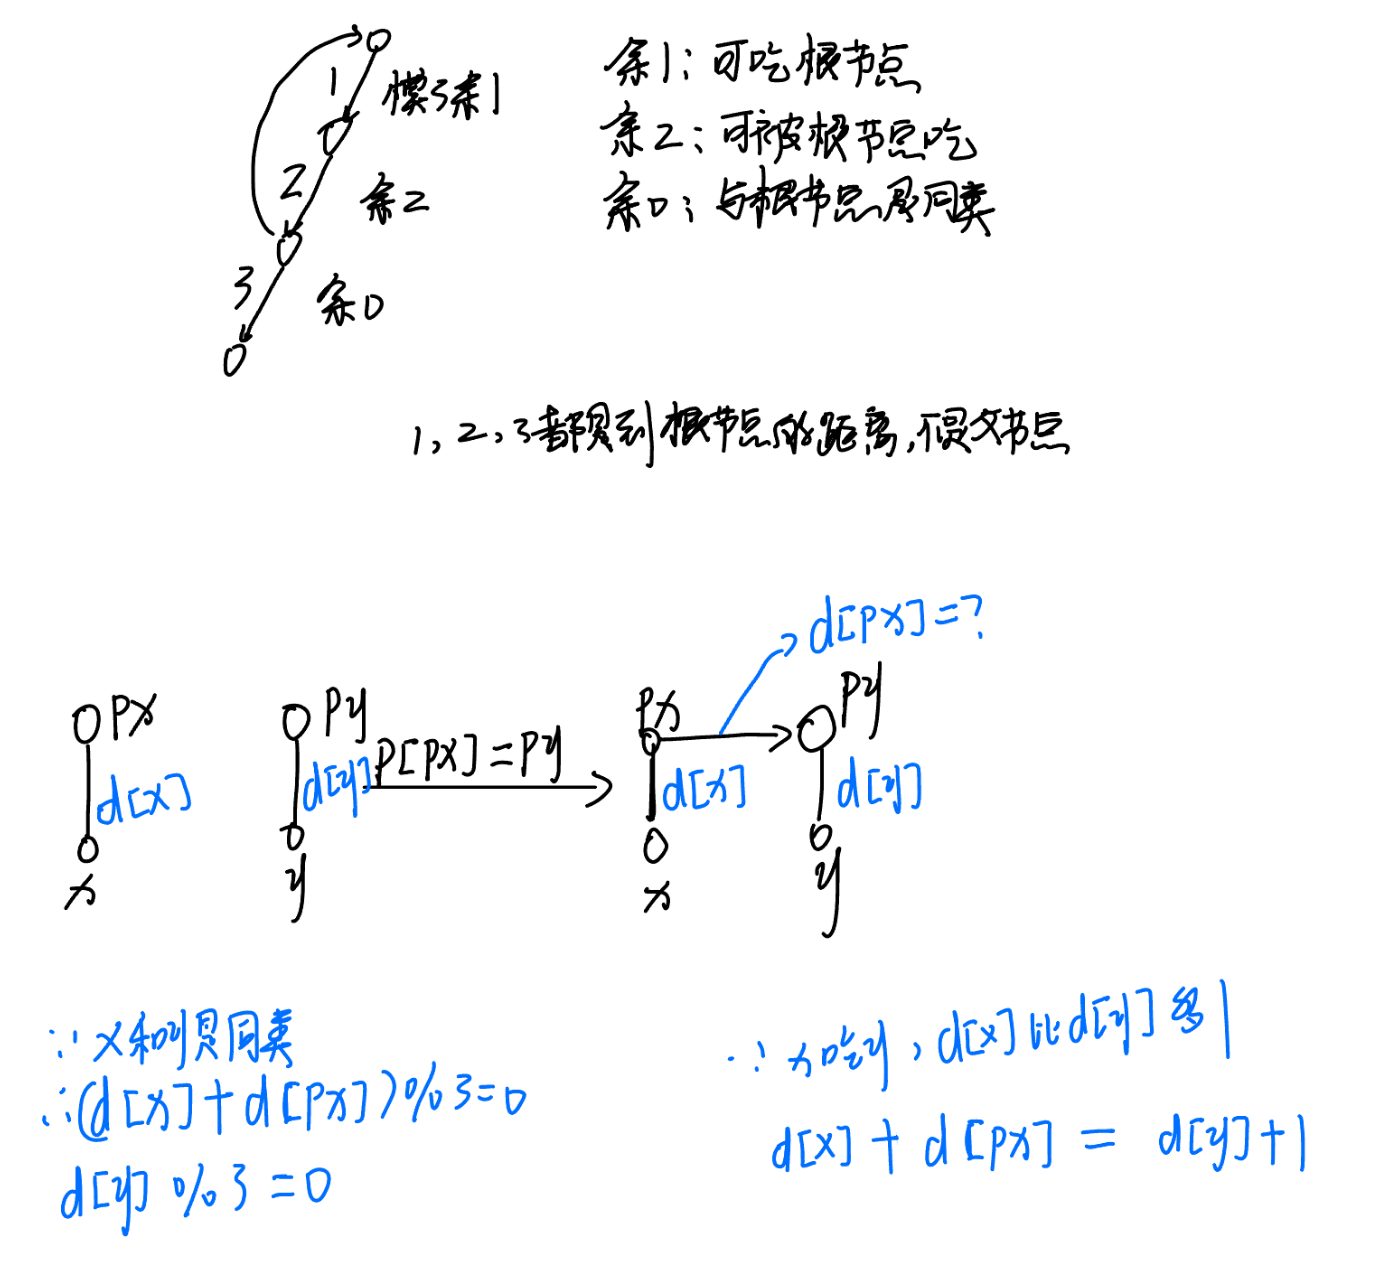 1
模3余1
余1：可吃根节点
余2：可被根节点吃
2
余2
余0：与根节点是同类
3
余0
1，2，3都是到根节点的距离，不是父节点
d[px]=?
px
py
p[px]=py
px
py
d[x]
d[y]
d[x]
d[y]
x
y
x
y
∵x和y是同类
∴(d[x]+d[px])%3=0
d[y]%3=0
∵x吃y，d[x]比d[y]多1
d[x]+d[px]=d[y]+1